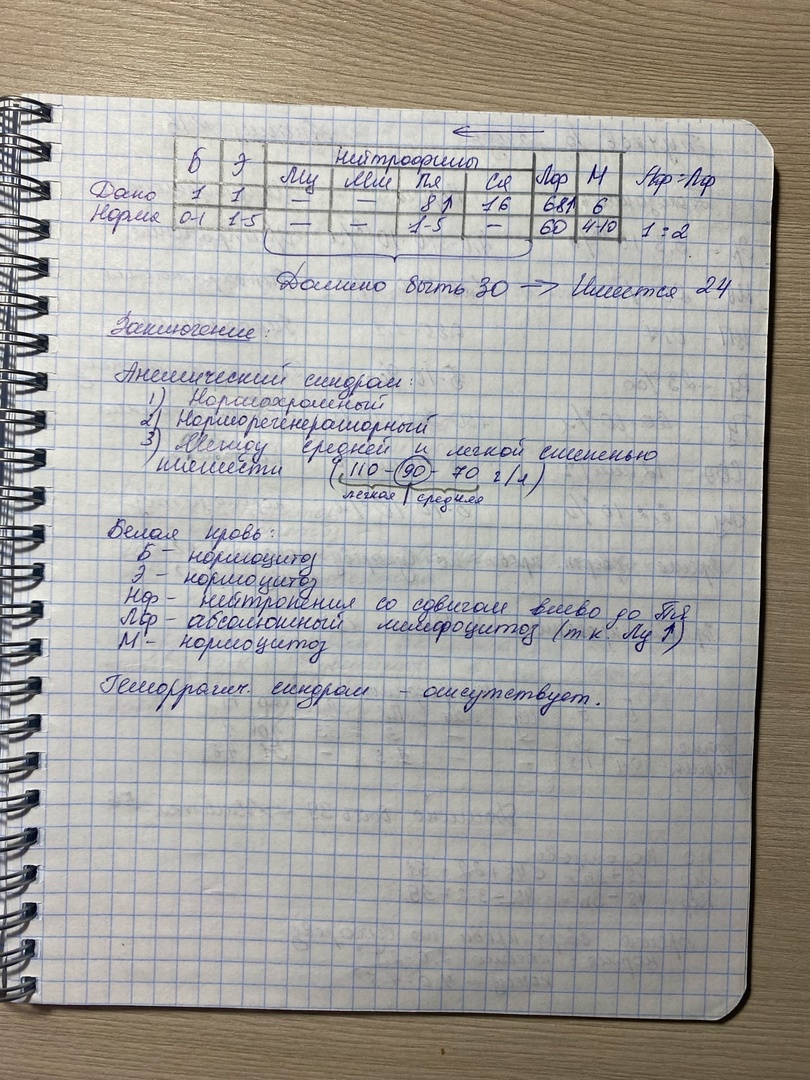 Б Э Нейтрофилы Лф М Нф : Лф
Му Мм Пя Ся
Дано 1 1 — — 8↑ 16 68↑ 6
Норма 0-1 1-5 — — 1-5 — 60 4-10 1 : 2
Должно быть 30 → Имеется 24
Заключение:
Анемический синдром:
1) Нормохромный
2) Норморегенераторный
3) Между средней и легкой степенью
тяжести (110 - 90 - 70 г/л)
легкая средняя
Белая кровь:
Б - нормоцитоз
Э - нормоцитоз
Нф - нейтропения со сдвигом влево до Пя
Лф - абсолютный лимфоцитоз (т.к. Лц ↑)
М - нормоцитоз
Геморрагич. синдром - отсутствует.